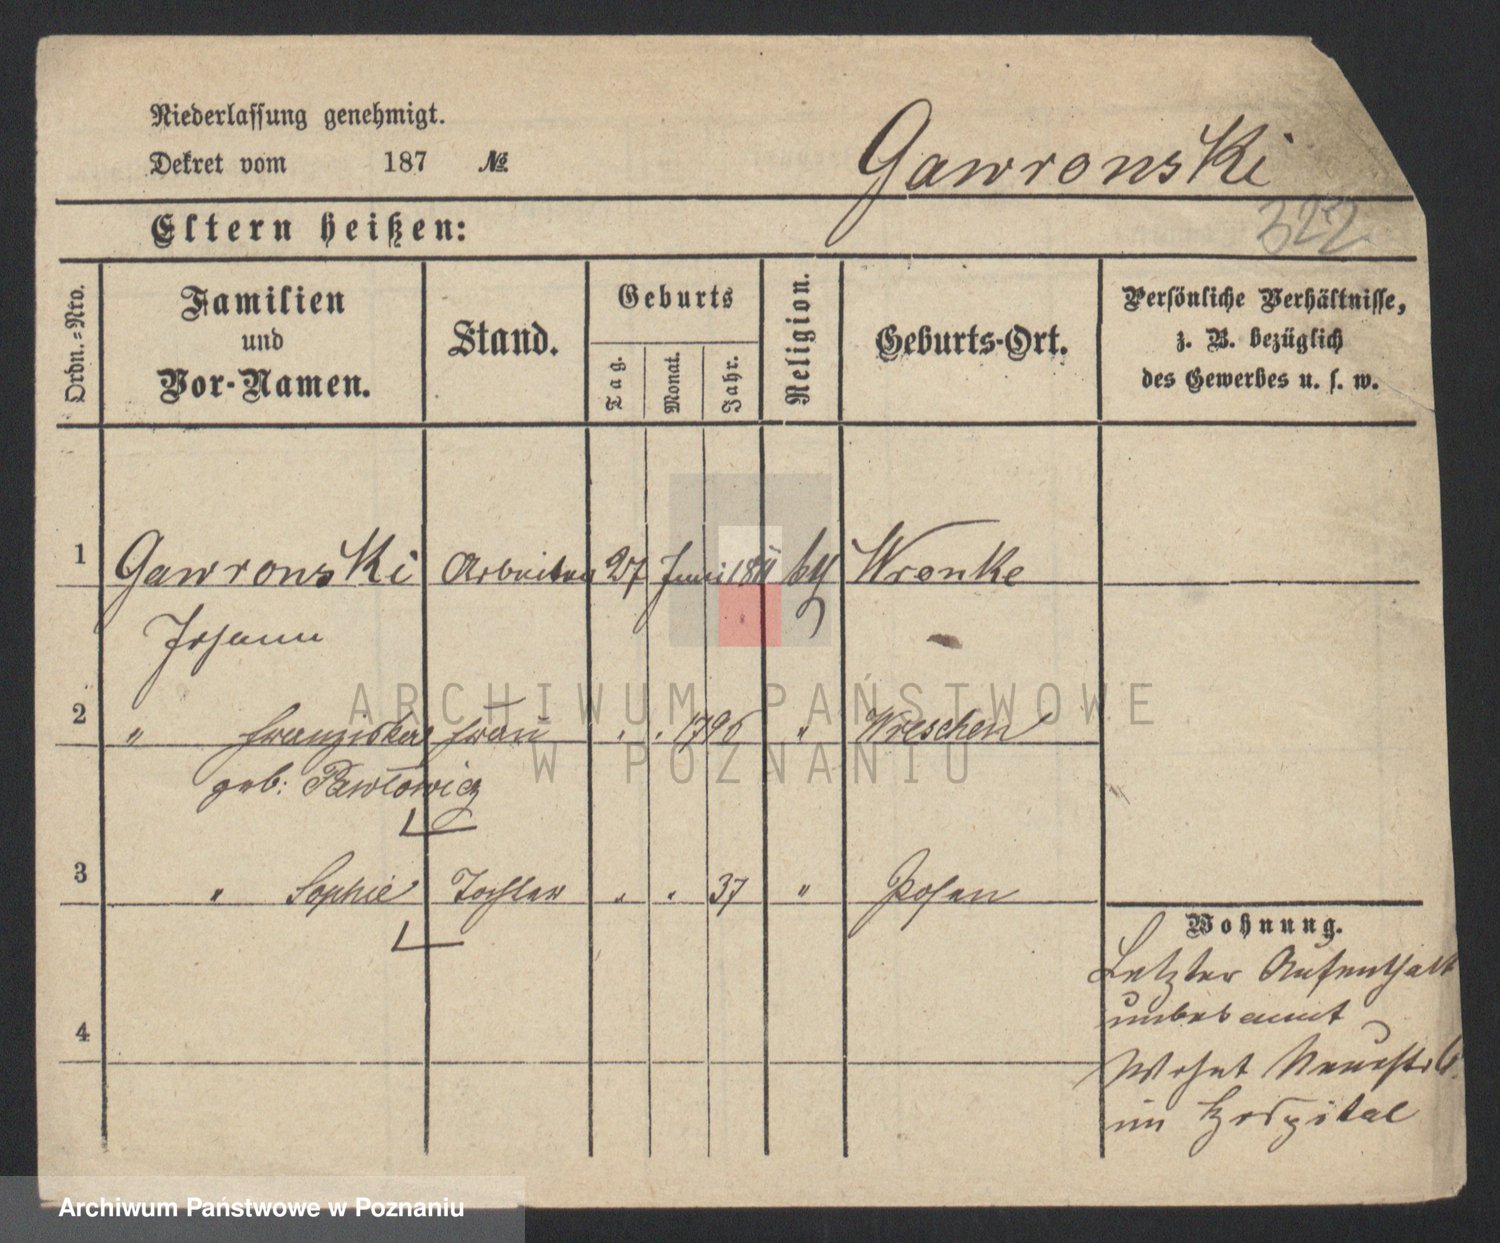 Niederlassung genehmigt.
Dekret vom 187 №
Gawronski
322
Eltern heißen:
Ordn.-Nro.
Familien und Vor-Namen.
Stand.
Geburts
Tag.
Monat.
Jahr.
Religion.
Geburts-Ort.
Persönliche Verhältnisse,
z. B. bezüglich
des Gewerbes u. s. w.
1 Gawronski Arbeiter 27 Juni Wronke
Johann
2 " Franziska Frau . . 1796 " Wreschen
geb: Pawlowicz
3 " Sophie Tochter . . 37 " Posen
4
Wohnung.
Letzter Aufenthalt
unbekannt
Wohnt Neuestr 6.
im Hospital
ARCHIWUM PAŃSTWOWE
W POZNANIU
Archiwum Państwowe w Poznaniu